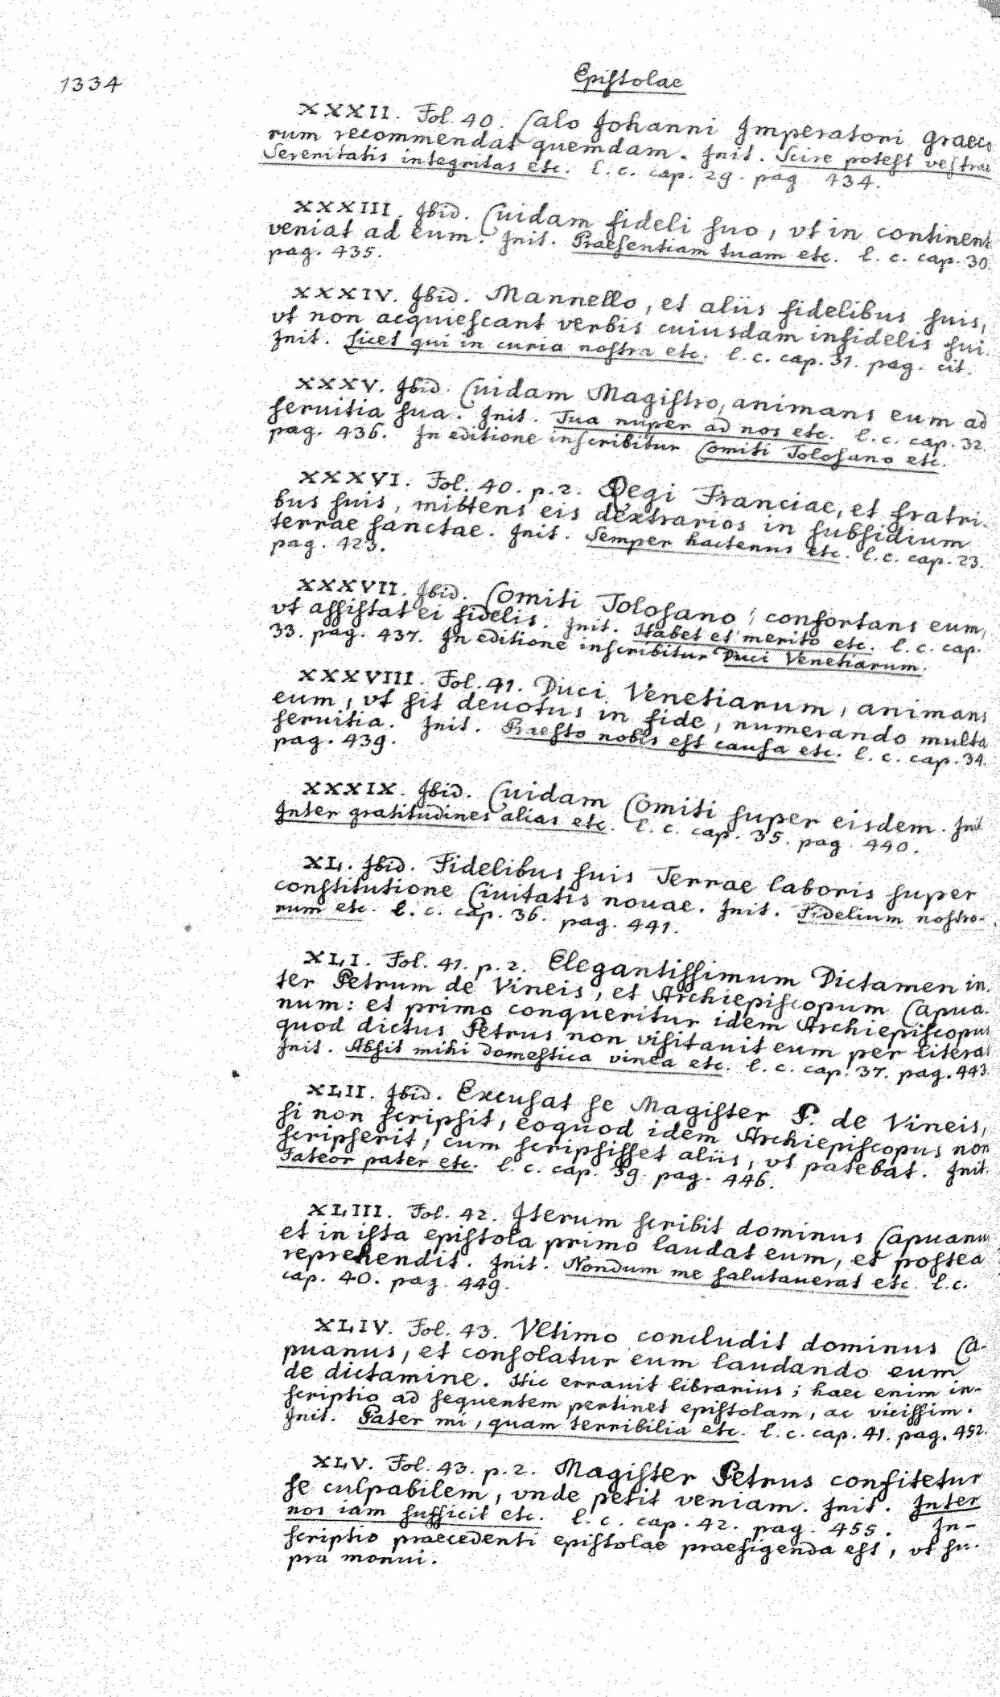 1334
Epistolae
XXXII. Fol. 40. Calo Johanni Imperatori Graeco
rum recommendat quemdam. Init. Scire potest vestrae
Serenitatis integritas etc. l. c. cap. 29. pag 434.
XXXIII. Ibid. Cuidam fideli suo, vt in continent
veniat ad eum. Init. Praesentiam tuam etc. l. c. cap. 30.
pag. 435.
XXXIV. Ibid. Mannello, et aliis fidelibus suis,
vt non acquiescant verbis cuiusdam infidelis sui.
Init. Licet qui in curia nostra etc. l. c. cap. 31. pag. cit.
XXXV. Ibid. Cuidam Magistro, animans eum ad
seruitia sua. Init. Tua nuper ad nos etc. l. c. cap. 32.
pag. 436. In editione inscribitur Comiti Tolosano etc.
XXXVI. Fol. 40. p. 2. Regi Franciae, et fratri-
bus suis, mittens eis dextrarios in subsidium
terrae sanctae. Init. Semper hactenus etc. l. c. cap. 23.
pag. 423.
XXXVII. Ibid. Comiti Tolosano, confortans eum,
vt assistat ei fidelis. Init. Habet et merito etc. l. c. cap.
33. pag. 437. In editione inscribitur Duci Venetiarum.
XXXVIII. Fol. 41. Duci Venetiarum, animans
eum, vt sit deuotus in fide, numerando multa
seruitia. Init. Praesto nobis est causa etc. l. c. cap. 34.
pag. 439.
XXXIX. Ibid. Cuidam Comiti super eisdem. Init.
Inter gratitudines alias etc. l. c. cap. 35. pag. 440.
XL. Ibid. Fidelibus suis Terrae laboris super
constitutione Ciuitatis nouae. Init. Fidelium nostro-
rum etc. l. c. cap. 36. pag. 441.
XLI. Fol. 41. p. 2. Elegantissimum Dictamen in-
ter Petrum de Vineis, et Archiepiscopum Capua-
num: et primo conqueritur idem Archiepiscopus
quod dictus Petrus non visitauit eum per literas
Init. Absit mihi domestica vinea etc. l. c. cap. 37. pag. 443.
XLII. Ibid. Excusat se Magister P. de Vineis,
si non scripsit, eoquod idem Archiepiscopus non
scripserit, cum scripsisset aliis, vt patebat. Init.
Fateor pater etc. l. c. cap. 39. pag. 446.
XLIII. Fol. 42. Iterum scribit dominus Capuanus
et in ista epistola primo laudat eum, et postea
reprehendit. Init. Nondum me salutauerat etc. l. c.
cap. 40. pag. 449.
XLIV. Fol. 43. Vltimo concludit dominus Ca-
puanus, et consolatur eum laudando eum
de dictamine. Hic errauit librarius; haec enim in-
scriptio ad sequentem pertinet epistolam, ac vicissim.
Init. Pater mi, quam terribilia etc. l. c. cap. 41. pag. 452.
XLV. Fol. 43. p. 2. Magister Petrus confitetur
se culpabilem, vnde petit veniam. Init. Inter
nos iam sufficit etc. l. c. cap. 42. pag. 455. In-
scriptio praecedenti epistolae praefigenda est, vt su-
pra monui.